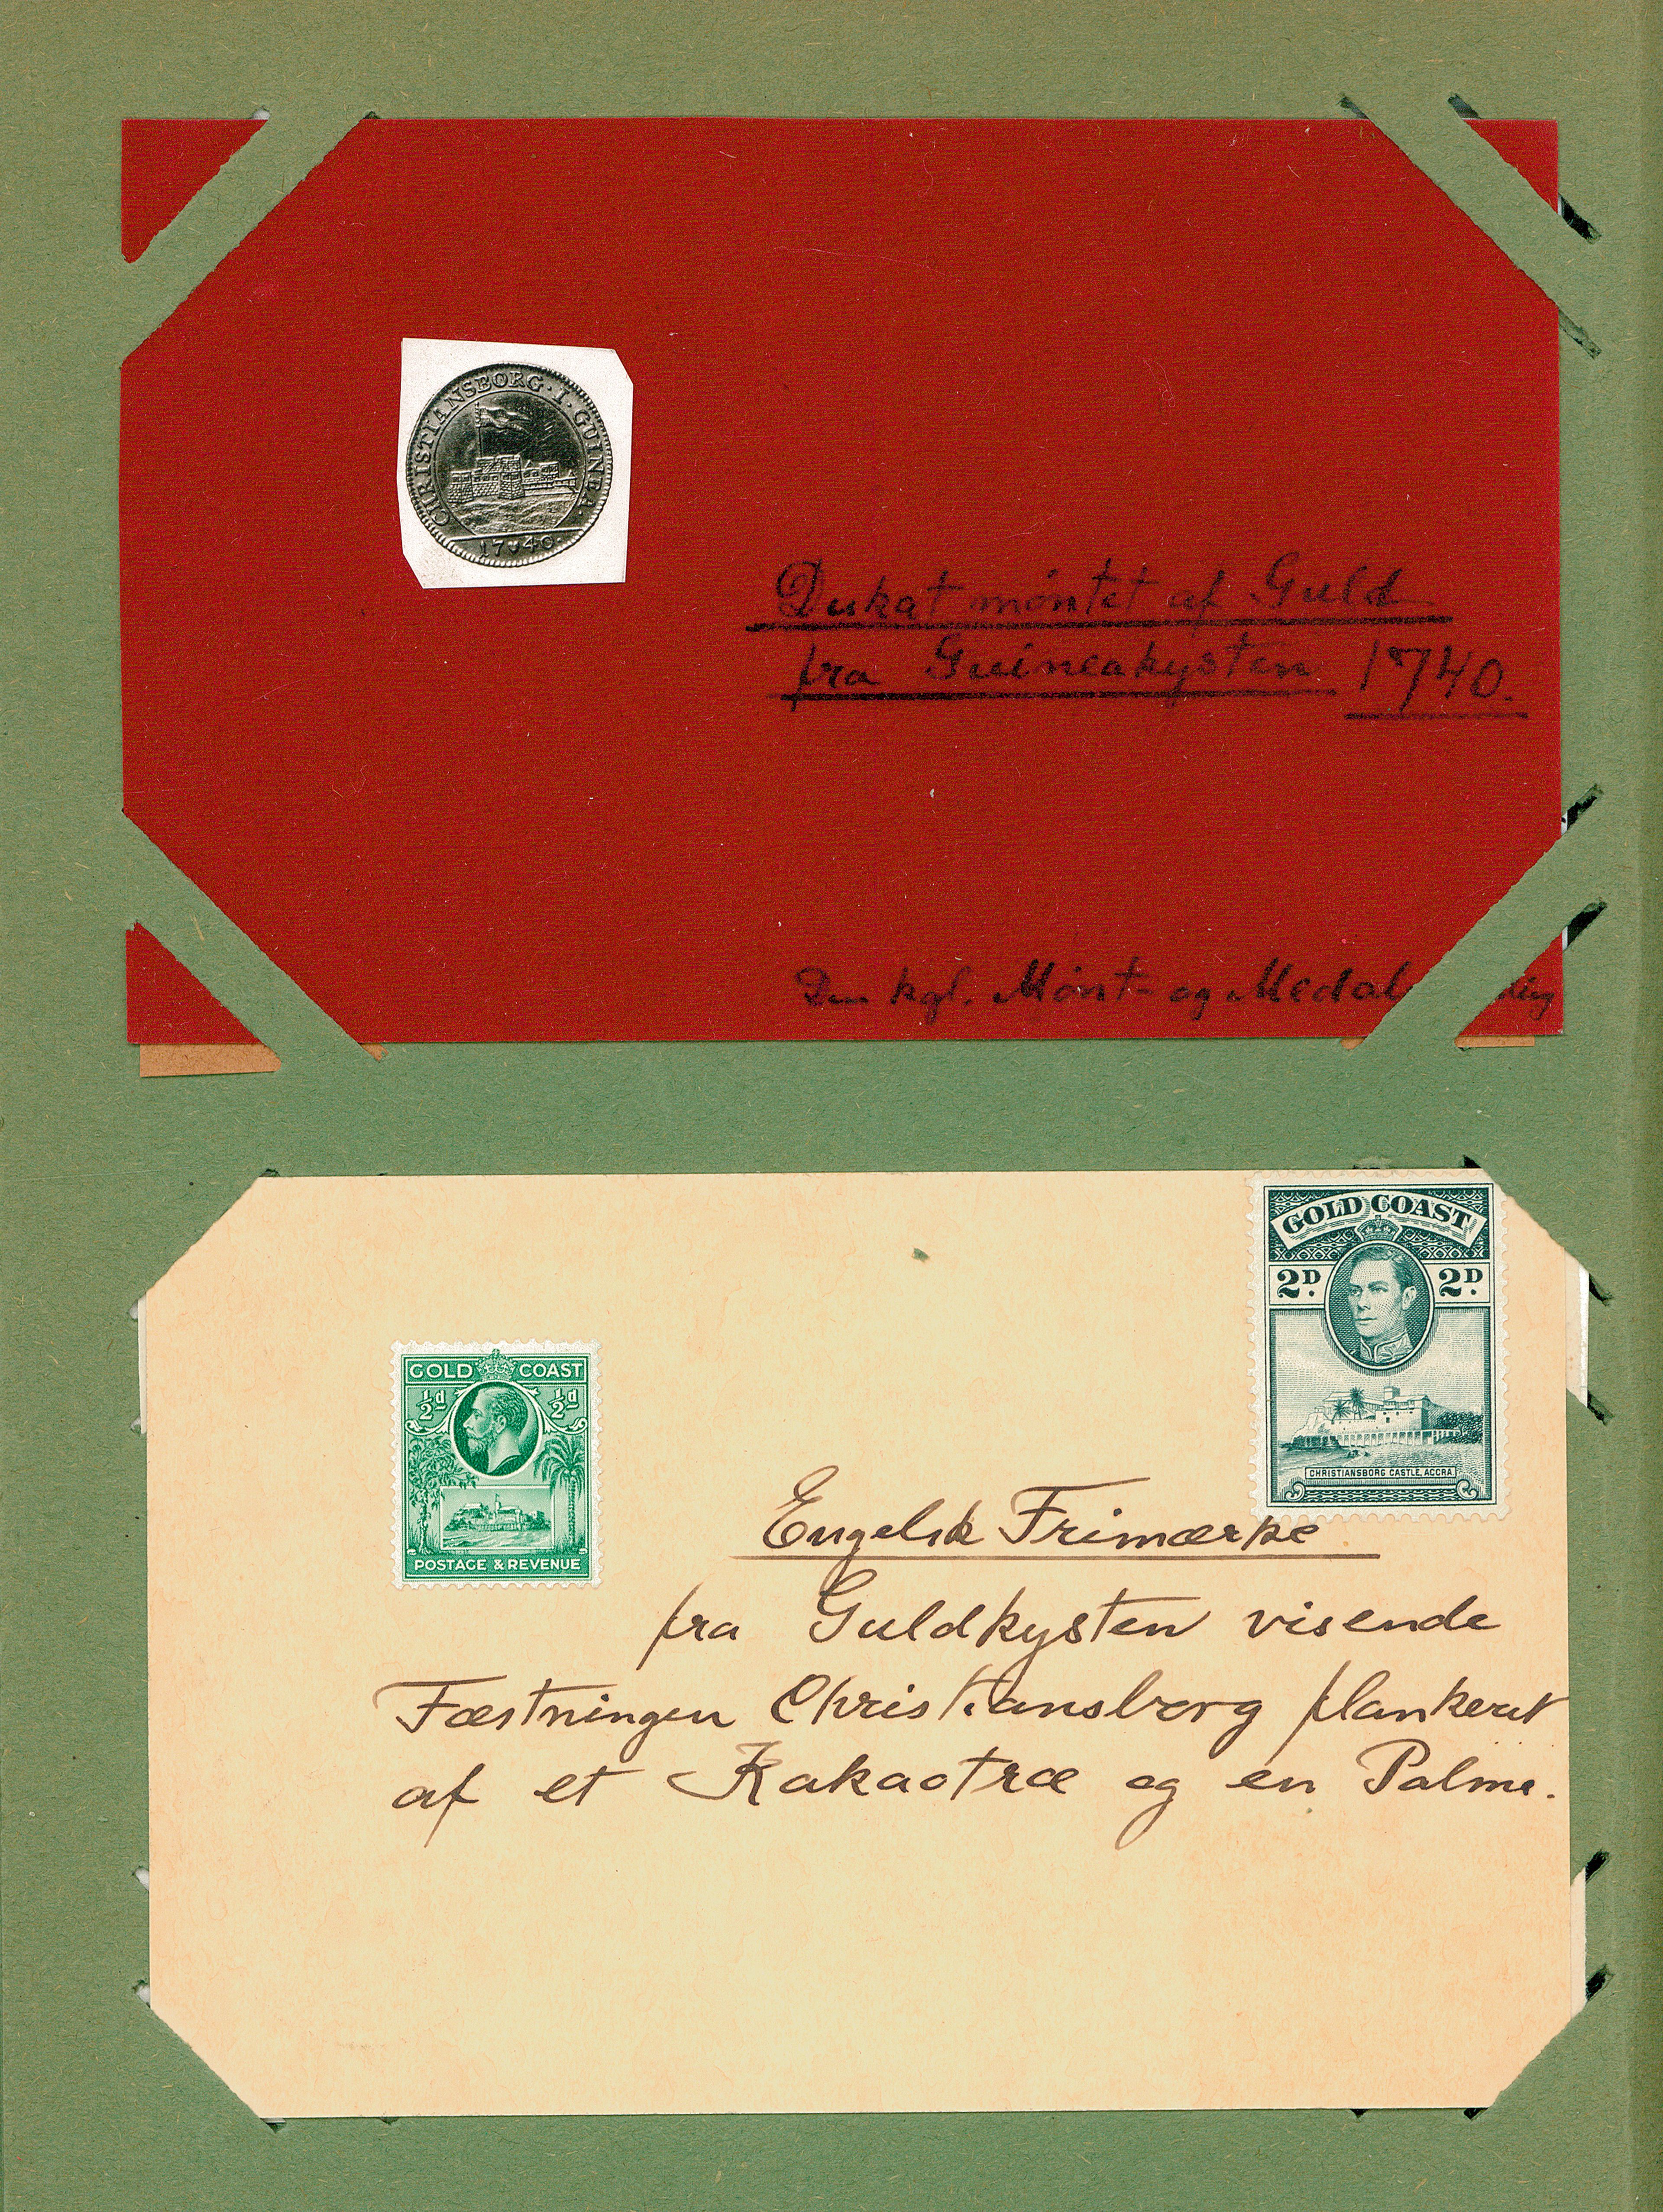 CHRISTIANSBORG · I · GUINEA ·
17 40 ·
Dukat møntet af Guld
fra Guineakysten 1740.
Den kgl. Mønt- og Medal
GOLD COAST
½d ½d
POSTAGE & REVENUE
GOLD COAST
2D. 2D.
CHRISTIANSBORG CASTLE, ACCRA.
Engelsk Frimærke
fra Guldkysten visende
Fæstningen Christiansborg flankeret
af et Kakaotræ og en Palme.